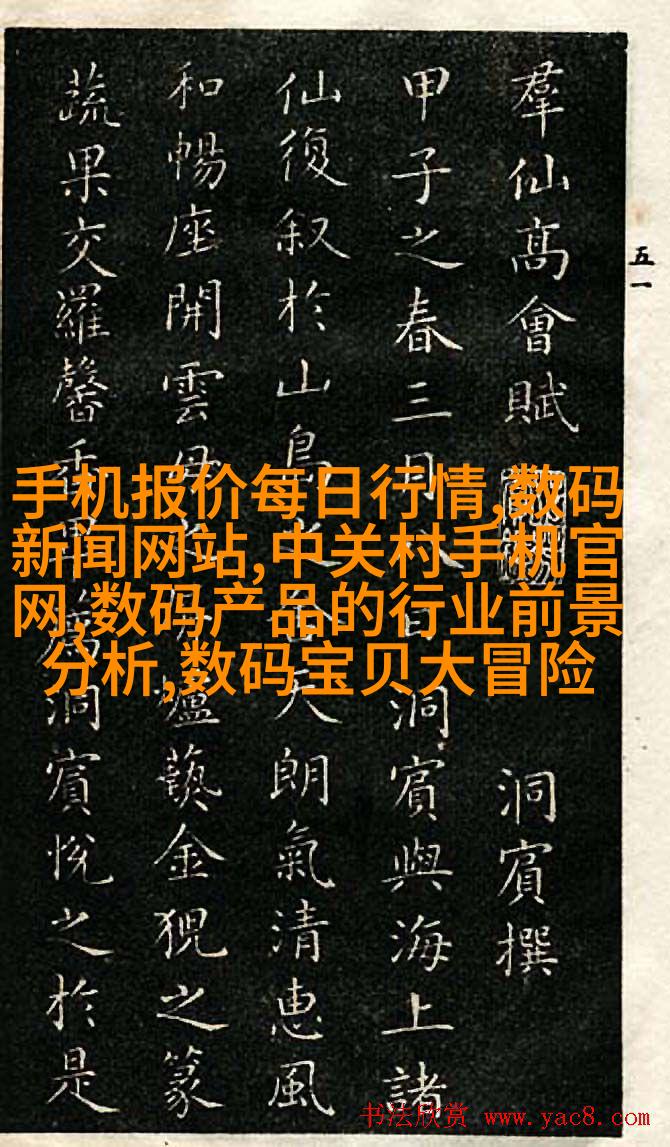 羣仙髙會賦 洞賓撰
甲子之春三月日洞賓與海上諸
仙復叙於山島之天朗氣清惠風
和暢座開雲母爐藝金猊之篆
蔬果交羅馨香洞賓悅之於是
五一
手机报价每日行情,数码
新闻网站,中关村手机官
网,数码产品的行业前景
分析,数码宝贝大冒险
书法欣赏 www.yac8.com